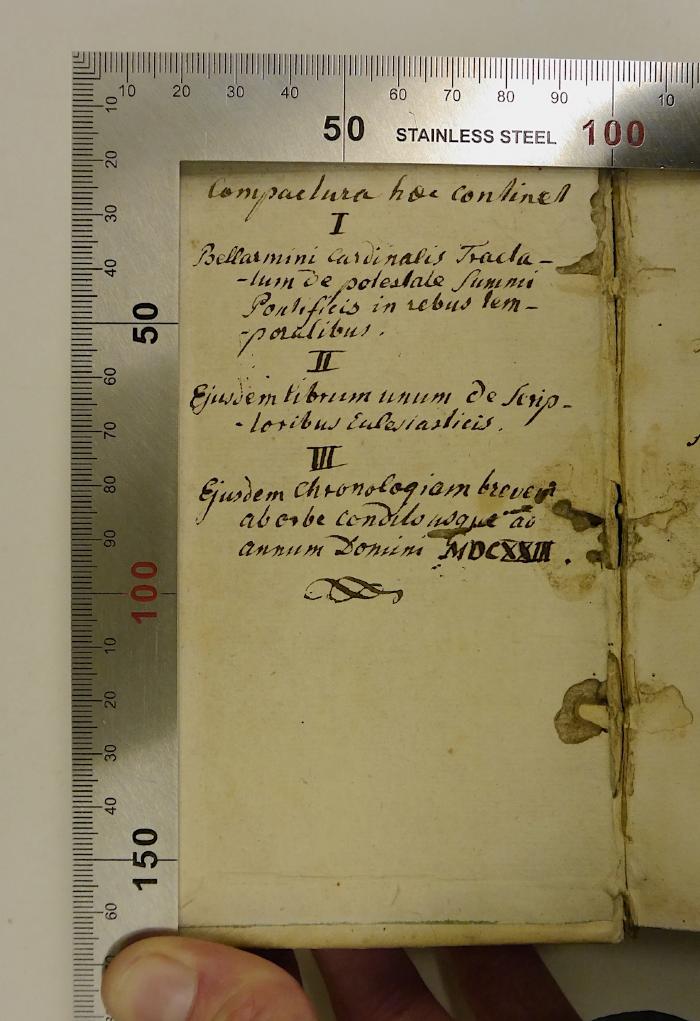 10 20 30 40 60 70 80 90 10
50 STAINLESS STEEL 100
10
20
30
40
50
60
70
80
90
100
10
20
30
40
150
60
Compactura hæc continet
I
Bellarmini Cardinalis Tracta-
-tum de potestate Summi
Pontificis in rebus tem-
-poralibus.
II
Ejusdem librum unum de Scrip-
-toribus Eclesiasticis.
III
Ejusdem Chronologiam brevem
ab orbe condito usque ad
annum Domini MDCXXIII.